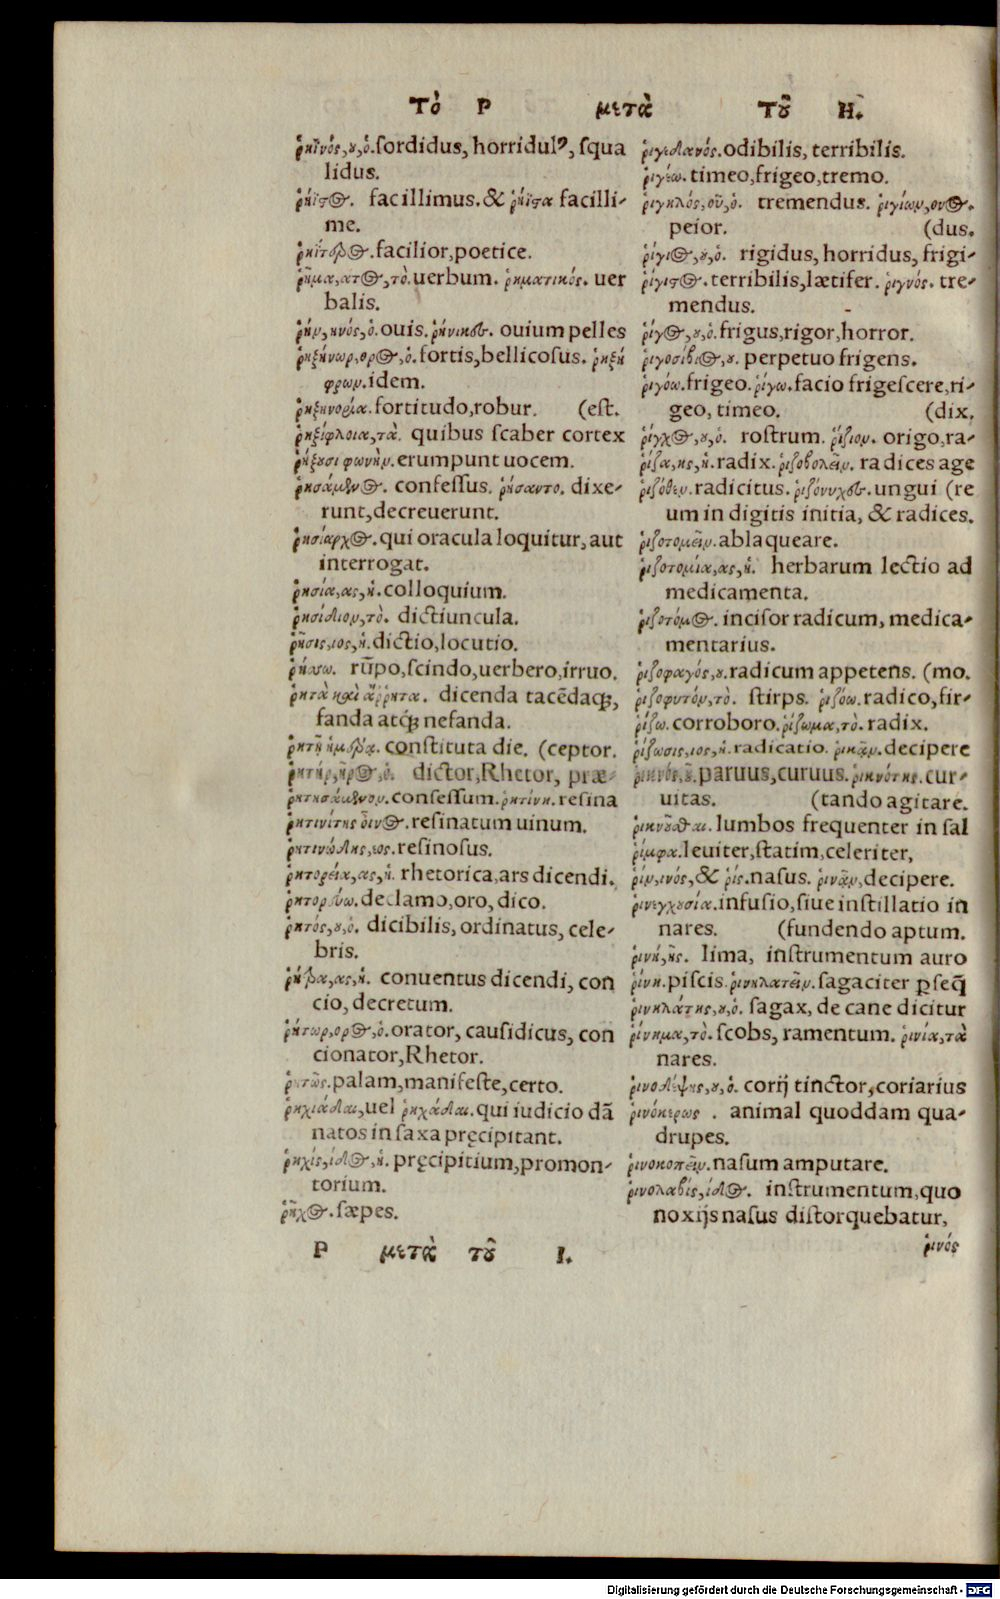 Τὸ Ρ μετὰ τοῦ Η.
ῥηϊνός,ου,ὁ.ſordidus, horridulꝰ, ſqua
lidus.
ῥήϊστος. facillimus.& ῥήϊστα facilli-
me.
ῥηΐτερος.facilior,poetice.
ῥῆμα,ατος,τὸ.uerbum. ῥηματικός. uer
balis.
ῥήν,ηνός,ὁ.ouis. ῥήνικες. ouium pelles
ῥηξήνωρ,ορος,ὁ.fortis,bellicoſus. ῥηξή
φρων.idem.
ῥηξηνορία.fortitudo,robur. (eſt.
ῥηξίφλοια,τὰ. quibus ſcaber cortex
ῥήξουσι φωνὴν.erumpunt uocem.
ῥησάμενος. confeſſus. ῥήσαντο. dixe-
runt,decreuerunt.
ῥησίαρχος.qui oracula loquitur, aut
interrogat.
ῥησία,ας,ἡ.colloquium.
ῥησίδιον,τὸ. dictiuncula.
ῥῆσις,ιος,ἡ.dictio,locutio.
ῥήσσω. rūpo,ſcindo,uerbero,irruo.
ῥητὰ καὶ ἄῤῥητα. dicenda tacēdaq;,
fanda atq; nefanda.
ῥητῇ ἡμέρᾳ. conſtituta die. (ceptor.
ῥητήρ,ῆρος,ὁ. dictor,Rhetor, præ-
ῥητησάμενον.confeſſum.ῥητίνη.reſina
ῥητινίτης οἶνος.reſinatum uinum.
ῥητινώδης,εος.reſinoſus.
ῥητορεία,ας,ἡ. rhetorica,ars dicendi.
ῥητορεύω.declamo,oro, dico.
ῥητός,ου,ὁ. dicibilis, ordinatus, cele-
bris.
ῥήτρα,ας,ἡ. conuentus dicendi, con
cio, decretum.
ῥήτωρ,ορος,ὁ.orator, cauſidicus, con
cionator,Rhetor.
ῥητῶς.palam,manifeſte,certo.
ῥηχιάδαι,uel ῥηχάδαι.qui iudicio dā
natos in ſaxa pręcipitant.
ῥηχίς,ίδος,ἡ.pręcipitium,promon-
torium.
ῥῆχος.ſæpes.
Ρ μετὰ τοῦ Ι.
ῥιγεδανός.odibilis, terribilis.
ῥιγέω.timeo,frigeo,tremo.
ῥιγηλός,οῦ,ὁ. tremendus. ῥιγίων,ονος.
peior. (dus.
ῥίγιος,ου,ὁ. rigidus, horridus, frigi-
ῥίγιστος.terribilis,lætifer. ῥιγνός. tre-
mendus.
ῥίγος,ου,ὁ.frigus,rigor,horror.
ῥιγοσίβιος,ου. perpetuo frigens.
ῥιγόω.frigeo.ῥίγω.facio frigeſcere,ri-
geo, timeo. (dix.
ῥίγχος,ου,ὁ. roſtrum. ῥίζιον. origo,ra-
ῥίζα,ης,ἡ.radix.ῥιζοβολεῖν. radices age
ῥιζόθεν.radicitus. ῥιζόνυχες.ungui (re
um in digitis initia, & radices.
ῥιζοτομεῖν.ablaqueare.
ῥιζοτομία,ας,ἡ. herbarum lectio ad
medicamenta.
ῥιζοτόμος.inciſor radicum, medica-
mentarius.
ῥιζοφαγός,ου.radicum appetens. (mo.
ῥιζοφυτόν,τὸ. ſtirps. ῥιζόω.radico,fir-
ῥίζω.corroboro.ῥίζωμα,τὸ.radix.
ῥίζωσις,ιος,ἡ.radicatio. ῥικᾶν.decipere
ῥικνός,οῦ.paruus,curuus. ῥικνότης.cur-
uitas. (tando agitare.
ῥικνοῦσθαι.lumbos frequenter in ſal
ῥίμφα.leuiter,ſtatim,celeriter,
ῥίν,ινός,& ῥίς.naſus. ῥινᾶν,decipere.
ῥινεγχυσία.infuſio,ſiue inſtillatio in
nares. (fundendo aptum.
ῥινή,ῆς. lima, inſtrumentum auro
ῥίνη.piſcis.ῥινηλατεῖν.ſagaciter ꝑſeq̄
ῥινηλάτης,ου,ὁ. ſagax, de cane dicitur
ῥίνημα,τὸ.ſcobs, ramentum. ῥινία,τὰ
nares.
ῥινοδέψης,ου,ὁ. corij tinctor,coriarius
ῥινόκερως . animal quoddam qua-
drupes.
ῥινοκοπεῖν.naſum amputare.
ῥινολαβίς,ίδος. inſtrumentum,quo
noxijs naſus diſtorquebatur,
ῥινός
Digitalisierung gefördert durch die Deutsche Forschungsgemeinschaft - DFG